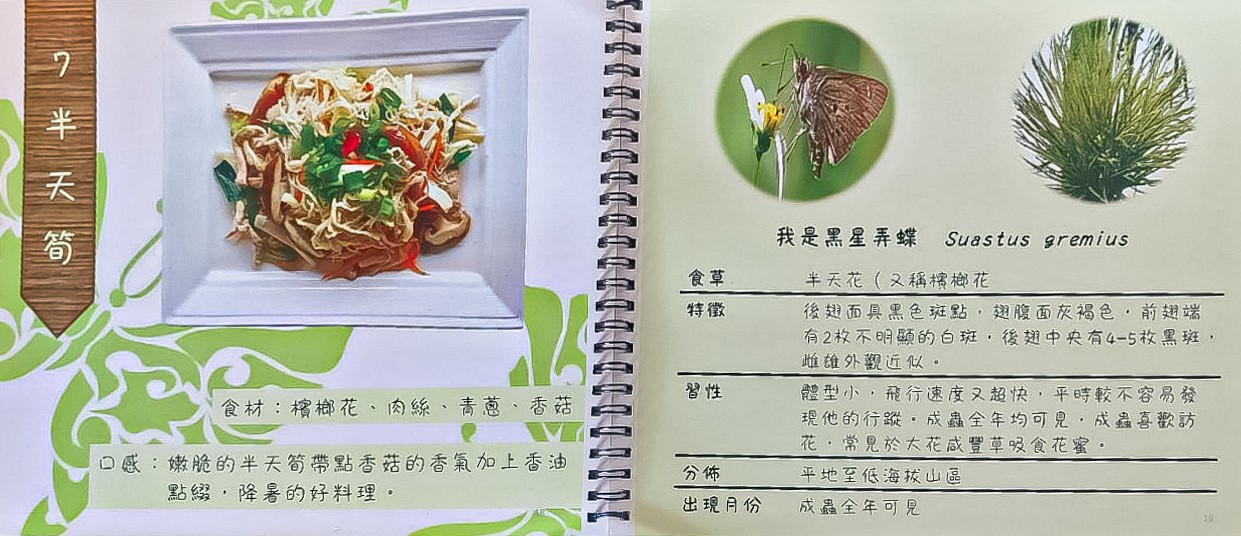 7半天筍
食材：檳榔花、肉絲、青蔥、香菇
口感：嫩脆的半天筍帶點香菇的香氣加上香油
點綴，降暑的好料理。
我是黑星弄蝶 Suastus gremius
食草 半天花（又稱檳榔花
特徵 後翅面具黑色斑點，翅腹面灰褐色，前翅端
有2枚不明顯的白斑，後翅中央有4-5枚黑斑，
雌雄外觀近似。
習性 體型小，飛行速度又超快，平時較不容易發
現他的行蹤。成蟲全年均可見，成蟲喜歡訪
花，常見於大花咸豐草吸食花蜜。
分佈 平地至低海拔山區
出現月份 成蟲全年可見
19